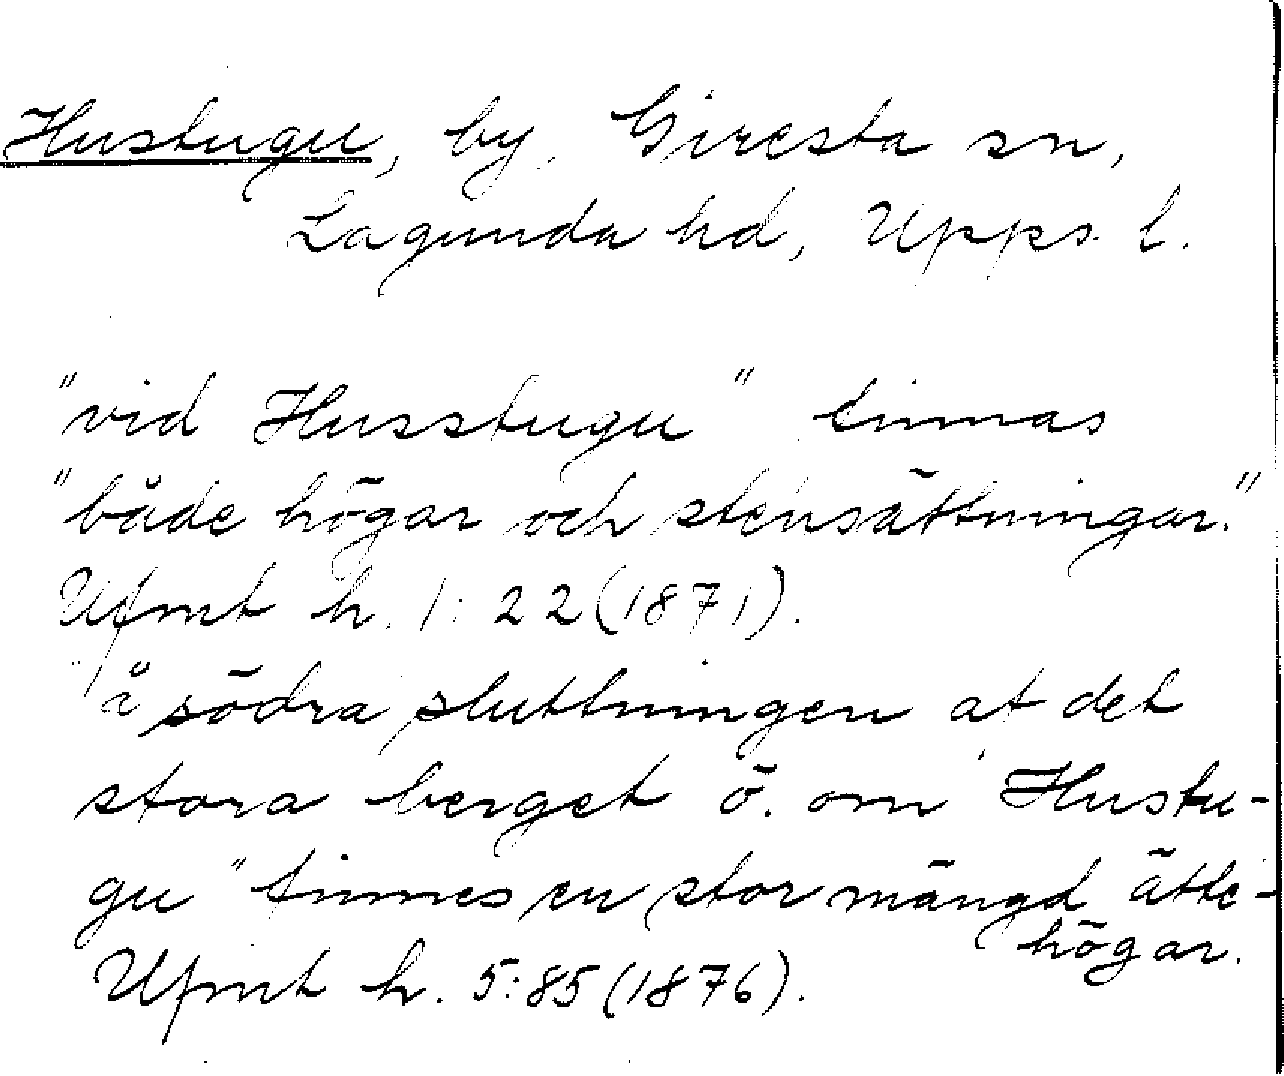 Hustugu, by, Giresta sn,
Lagunda hd, Upps. l.
"vid Husstugu" finnas
"både högar och stensättningar."
Ufmt h. 1:22 (1871).
"å södra sluttningen af det
stora berget ö. om Hustu-
gu" finnes en stor mängd ätte-
högar.
Ufmt h. 5:85 (1876).